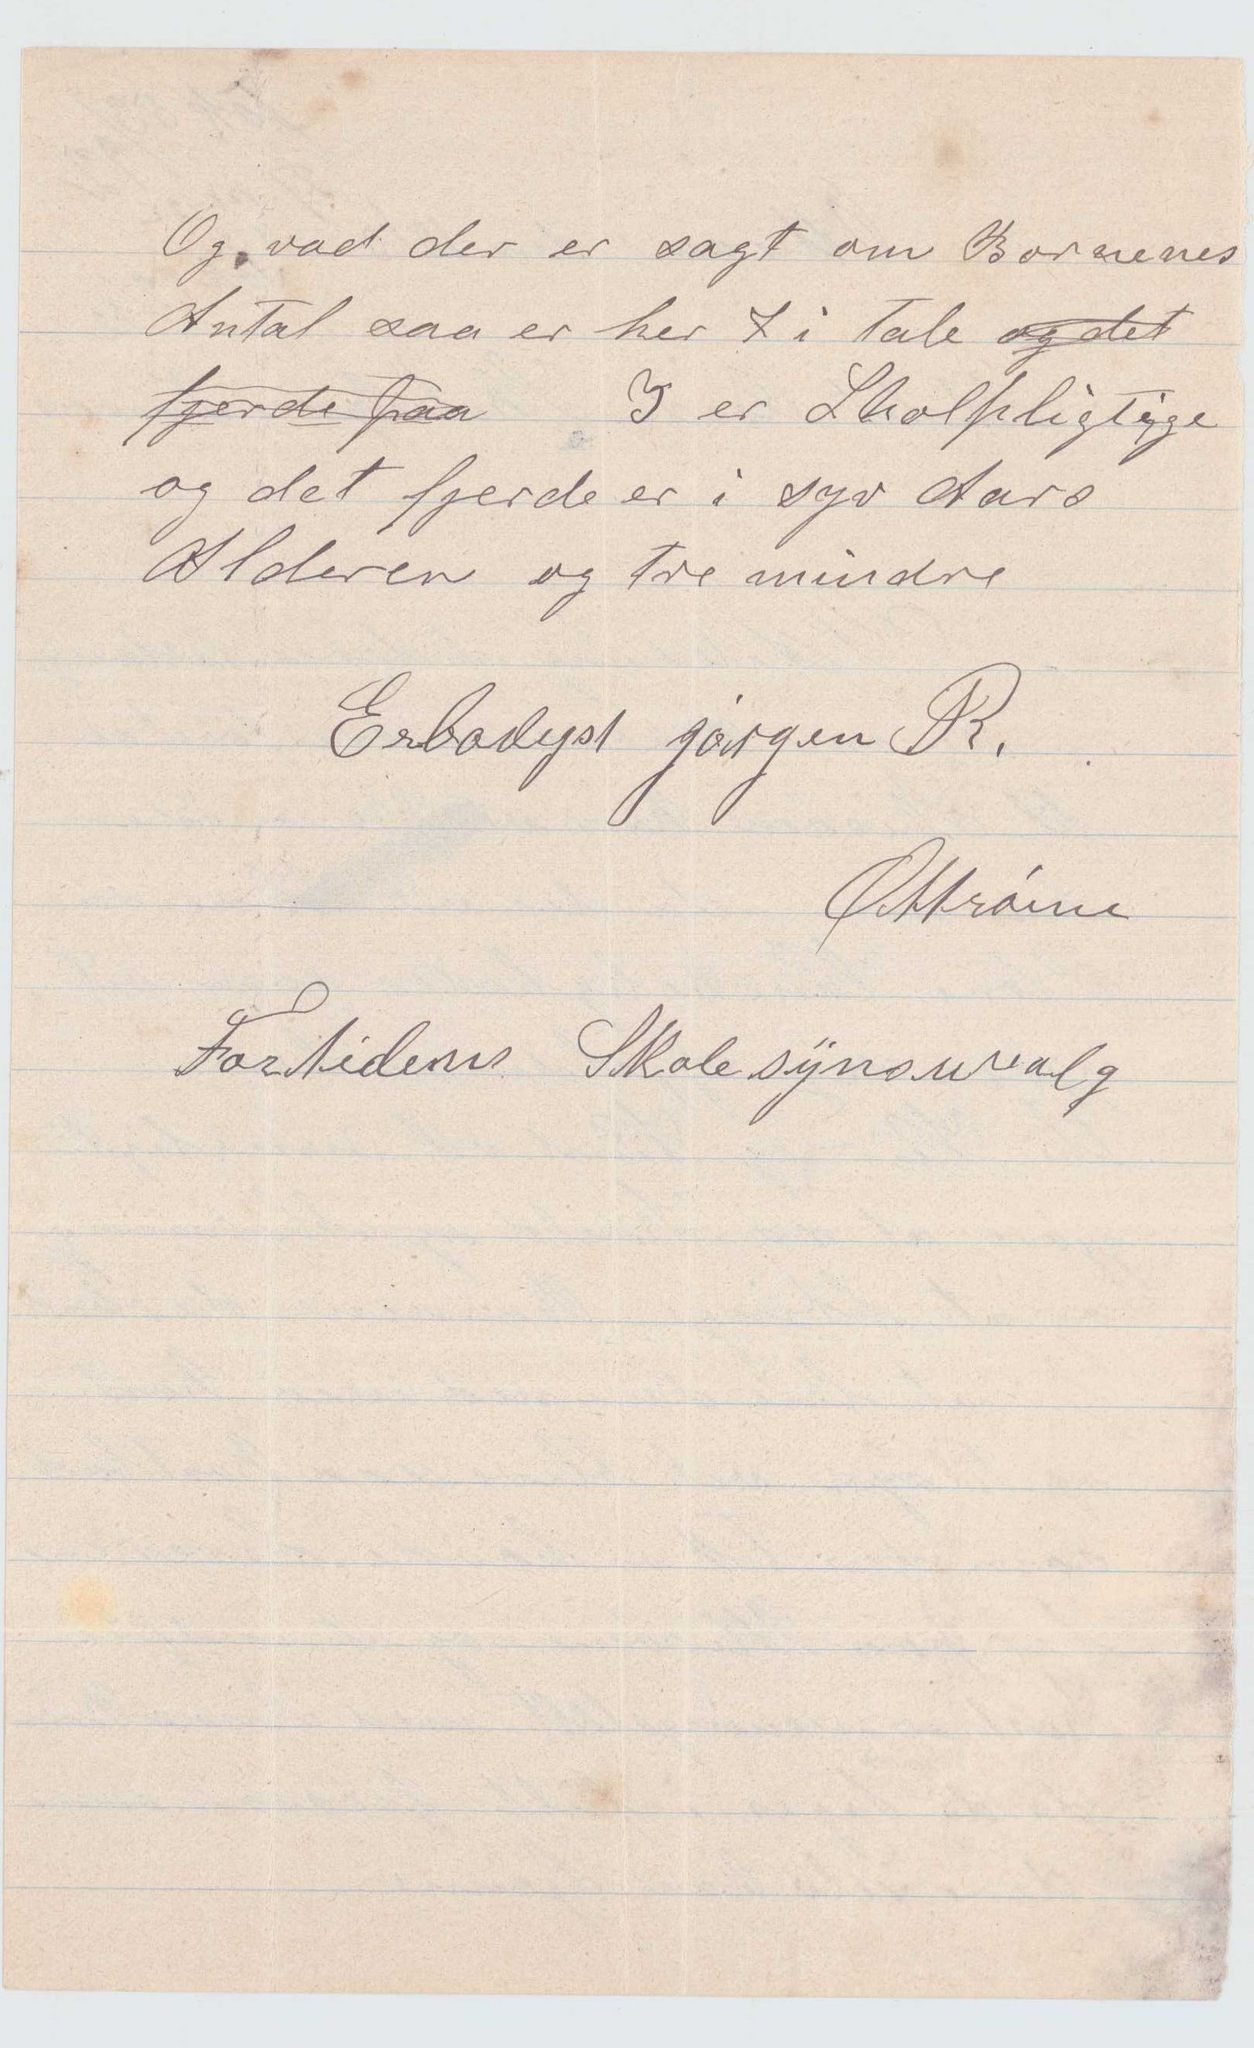 Og, vad der er sagt om Bornenes
Antal saa er her 7 i tale og det
fjerde paa 3 er Skolpligtige
og det fjerde er i syv Aars
Alderen og tre mindre
Erbodyst jørgen R.
Ottrøine
Fortidens Skolesynsuvalg